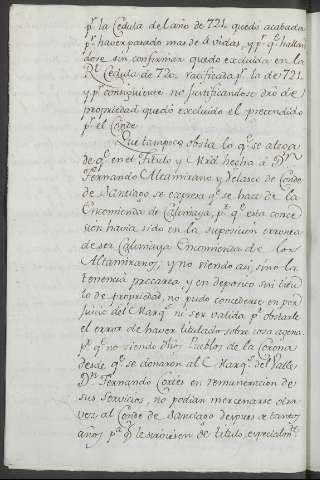 pr. la Cedula del año de 721. quedó acabada
pr. haver pasado mas de 4 vidas, y pr. qe. hallan
dose sin confirmar quedó excluida en la
Rl. Cedula de 720. racificada pr. la de 721.
y pr. consiguiente no justificandose dro. de
propriedad quedó excluido el pretendido
pr. el Conde
Que tampoco obsta lo qe. se alega
de qe. en el Titulo y Mrd. hecha á Dn.
Fernando Altamirano y Velasco de Conde
de Santiago se expresa qe. se hace de la
Encomienda de Calimaya, pr. qe. esta conce
sion havia sido en la suposicion erronea
de ser Calimaya Encomienda de los
Altamiranos, y no siendo asi, sino la
tenencia precarea y en deposito sin titu
lo de propriedad, no pudo concederse en per
juicio del Marqs. ni ser valida pr. obstarle
el error de haver titulado sobre cosa agena
pr. qe. no siendo dhos. Pueblos de la Corona
desde qe. se donaron al Marqs. del Valle
Dn. Fernando Cortes en remuneracion de
sus servicios, no podian mercenarse otra
vez al Conde de Santiago despues de tantos
años pa. qe. le sirviesen de titulo, especialmte.